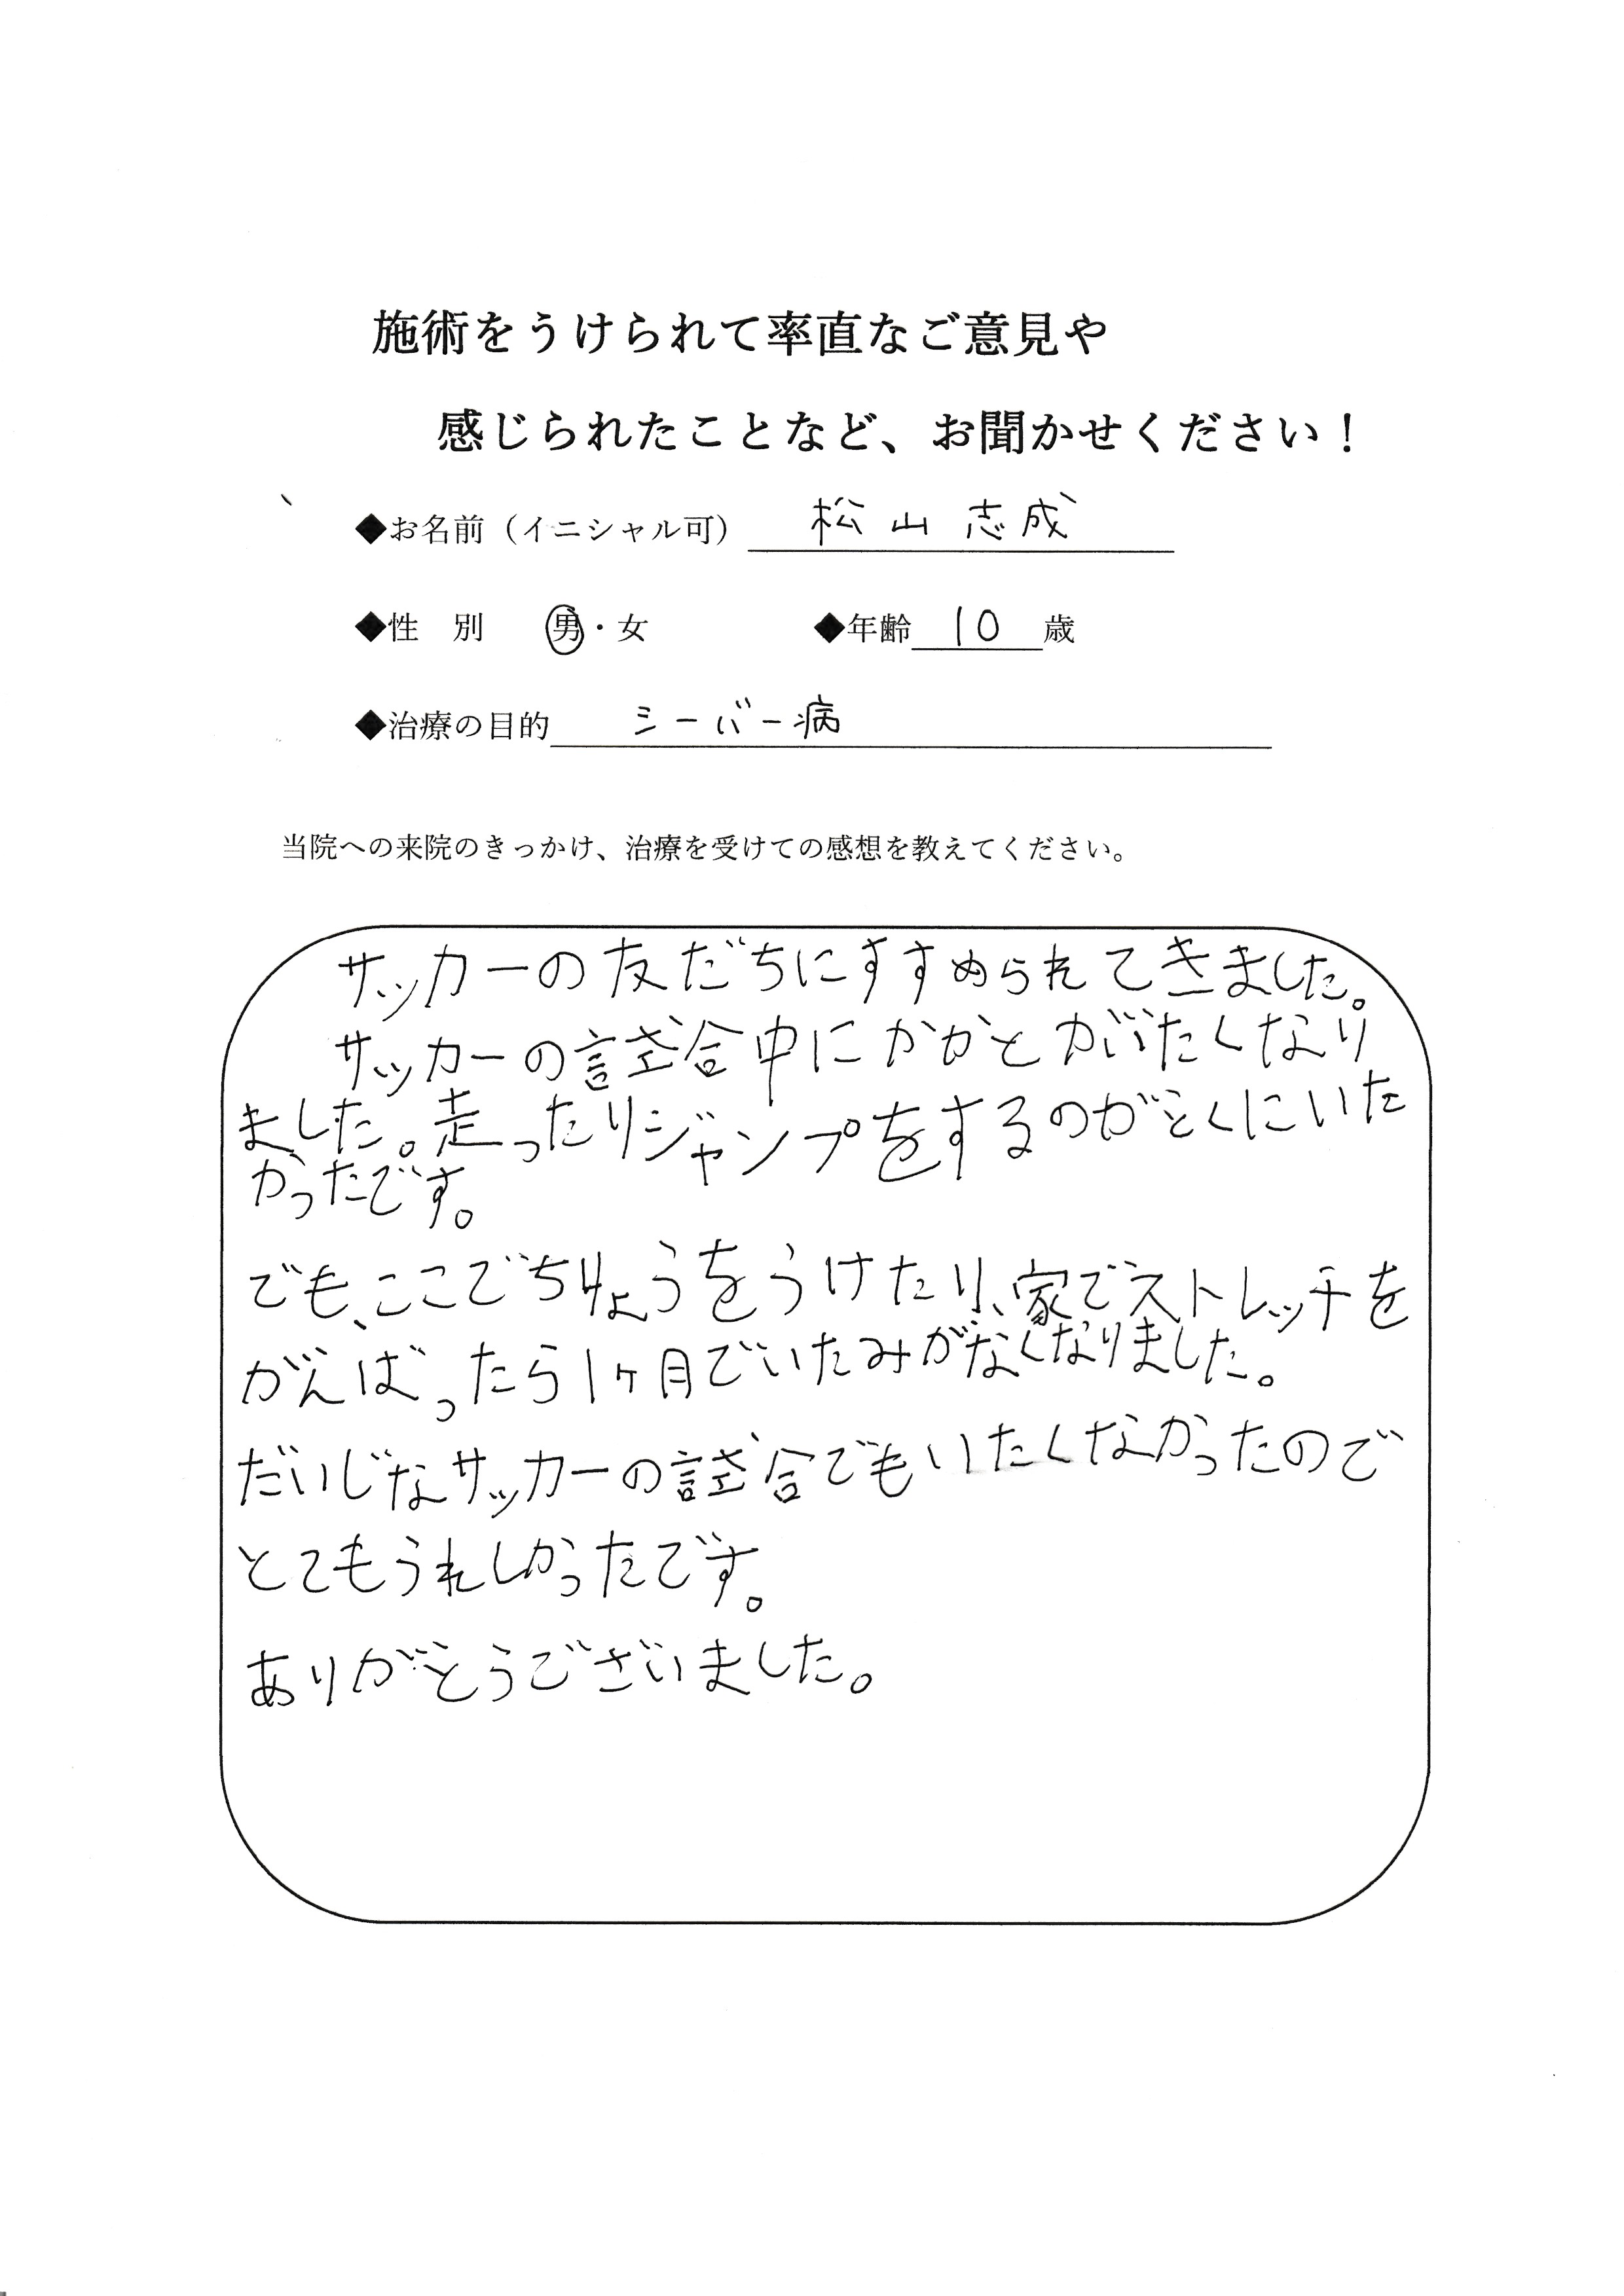 施術をうけられて率直なご意見や
感じられたことなど、お聞かせください！
◆お名前（イニシャル可） 松山 志成
◆性 別 男・女 ◆年齢 10 歳
◆治療の目的 シーバー病
当院への来院のきっかけ、治療を受けての感想を教えてください。
サッカーの友だちにすすめられてきました。
サッカーの試合中にかかとがいたくなり
ました。走ったりジャンプをするのがとくにいた
かったです。
でも、ここでちりょうをうけたり、家でストレッチを
がんばったら1ヶ月でいたみがなくなりました。
だいじなサッカーの試合でもいたくなかったので
とてもうれしかったです。
ありがとうございました。